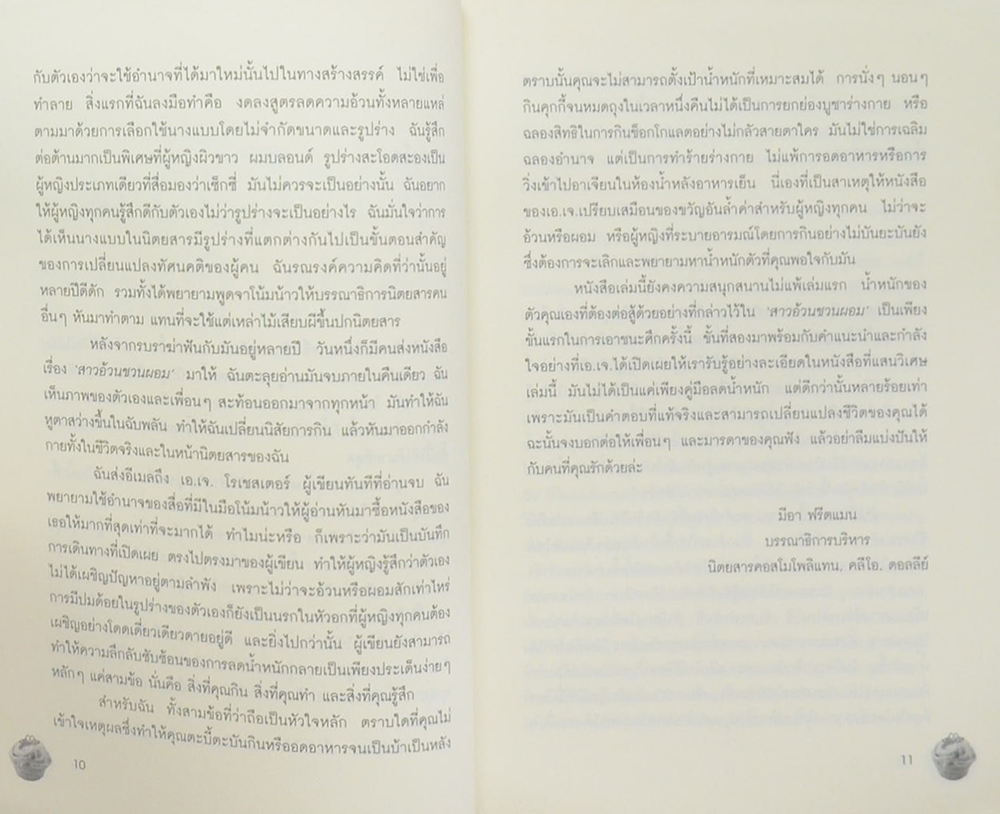 กับตัวเองว่าจะใช้อำนาจที่ได้มาใหม่นั้นไปในทางสร้างสรรค์ ไม่ใช่เพื่อ
ทำลาย สิ่งแรกที่ฉันลงมือทำคือ งดลงสูตรลดความอ้วนทั้งหลายแหล่
ตามมาด้วยการเลือกใช้นางแบบโดยไม่จำกัดขนาดและรูปร่าง ฉันรู้สึก
ต่อต้านมากเป็นพิเศษที่ผู้หญิงผิวขาว ผมบลอนด์ รูปร่างสะโอดสะองเป็น
ผู้หญิงประเภทเดียวที่สื่อมองว่าเซ็กซี่ มันไม่ควรจะเป็นอย่างนั้น ฉันอยาก
ให้ผู้หญิงทุกคนรู้สึกดีกับตัวเองไม่ว่ารูปร่างจะเป็นอย่างไร ฉันมั่นใจว่าการ
ได้เห็นนางแบบในนิตยสารมีรูปร่างที่แตกต่างกันไปเป็นขั้นตอนสำคัญ
ของการเปลี่ยนแปลงทัศนคติของผู้คน ฉันรณรงค์ความคิดที่ว่านั้นอยู่
หลายปีดีดัก รวมทั้งได้พยายามพูดจาโน้มน้าวให้บรรณาธิการนิตยสารคน
อื่นๆ หันมาทำตาม แทนที่จะใช้แต่เหล่าไม้เสียบผีขึ้นปกนิตยสาร
หลังจากรบราฆ่าฟันกับมันอยู่หลายปี วันหนึ่งก็มีคนส่งหนังสือ
เรื่อง 'สาวอ้วนชวนผอม' มาให้ ฉันตะลุยอ่านมันจบภายในคืนเดียว ฉัน
เห็นภาพของตัวเองและเพื่อนๆ สะท้อนออกมาจากทุกหน้า มันทำให้ฉัน
หูตาสว่างขึ้นในฉับพลัน ทำให้ฉันเปลี่ยนนิสัยการกิน แล้วหันมาออกกำลัง
กายทั้งในชีวิตจริงและในหน้านิตยสารของฉัน
ฉันส่งอีเมลถึง เอ.เจ. โรเชสเตอร์ ผู้เขียนทันทีที่อ่านจบ ฉัน
พยายามใช้อำนาจของสื่อที่มีในมือโน้มน้าวให้ผู้อ่านหันมาซื้อหนังสือของ
เธอให้มากที่สุดเท่าที่จะมากได้ ทำไมน่ะหรือ ก็เพราะว่ามันเป็นบันทึก
การเดินทางที่เปิดเผย ตรงไปตรงมาของผู้เขียน ทำให้ผู้หญิงรู้สึกว่าตัวเอง
ไม่ได้เผชิญปัญหาอยู่ตามลำพัง เพราะไม่ว่าจะอ้วนหรือผอมสักเท่าไหร่
การมีปมด้อยในรูปร่างของตัวเองก็ยังเป็นนรกในหัวอกที่ผู้หญิงทุกคนต้อง
เผชิญอย่างโดดเดี่ยวเดียวดายอยู่ดี และยิ่งไปกว่านั้น ผู้เขียนยังสามารถ
ทำให้ความลึกลับซับซ้อนของการลดน้ำหนักกลายเป็นเพียงประเด็นง่ายๆ
หลักๆ แค่สามข้อ นั่นคือ สิ่งที่คุณกิน สิ่งที่คุณทำ และสิ่งที่คุณรู้สึก
สำหรับฉัน ทั้งสามข้อที่ว่าถือเป็นหัวใจหลัก ตราบใดที่คุณไม่
เข้าใจเหตุผลซึ่งทำให้คุณตะบี้ตะบันกินหรืออดอาหารจนเป็นบ้าเป็นหลัง
10
ตราบนั้นคุณจะไม่สามารถตั้งเป้าน้ำหนักที่เหมาะสมได้ การนั่งๆ นอนๆ
กินคุกกี้จนหมดถุงในเวลาหนึ่งคืนไม่ได้เป็นการยกย่องบูชาร่างกาย หรือ
ฉลองสิทธิในการกินช็อกโกแลตอย่างไม่กลัวสายตาใคร มันไม่ใช่การเฉลิม
ฉลองอำนาจ แต่เป็นการทำร้ายร่างกาย ไม่แพ้การอดอาหารหรือการ
วิ่งเข้าไปอาเจียนในห้องน้ำหลังอาหารเย็น นี่เองที่เป็นสาเหตุให้หนังสือ
ของเอ.เจ.เปรียบเสมือนของขวัญอันล้ำค่าสำหรับผู้หญิงทุกคน ไม่ว่าจะ
อ้วนหรือผอม หรือผู้หญิงที่ระบายอารมณ์โดยการกินอย่างไม่บันยะบันยัง
ซึ่งต้องการจะเลิกและพยายามหาน้ำหนักตัวที่คุณพอใจกับมัน
หนังสือเล่มนี้ยังคงความสนุกสนานไม่แพ้เล่มแรก น้ำหนักของ
ตัวคุณเองที่ต้องต่อสู้ด้วยอย่างที่กล่าวไว้ใน 'สาวอ้วนชวนผอม' เป็นเพียง
ขั้นแรกในการเอาชนะศึกครั้งนี้ ขั้นที่สองมาพร้อมกับคำแนะนำและกำลัง
ใจอย่างที่เอ.เจ.ได้เปิดเผยให้เรารับรู้อย่างละเอียดในหนังสือที่แสนวิเศษ
เล่มนี้ มันไม่ได้เป็นแค่เพียงคู่มือลดน้ำหนัก แต่ดีกว่านั้นหลายร้อยเท่า
เพราะมันเป็นคำตอบที่แท้จริงและสามารถเปลี่ยนแปลงชีวิตของคุณได้
ฉะนั้นจงบอกต่อให้เพื่อนๆ และมารดาของคุณฟัง แล้วอย่าลืมแบ่งปันให้
กับคนที่คุณรักด้วยล่ะ
มีอา ฟรีดแมน
บรรณาธิการบริหาร
นิตยสารคอสโมโพลิแทน, คลีโอ, ดอลลี่ย์
11